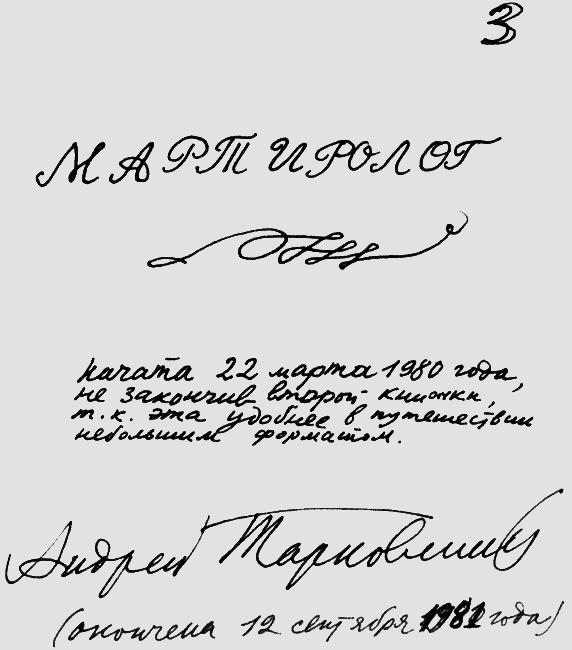 3
МАРТИРОЛОГ
начата 22 марта 1980 года,
не закончив второй книжки,
т.к. эта удобнее в путешествии
небольшим форматом.
Андрей Тарковский
(окончена 12 сентября 1981 года)